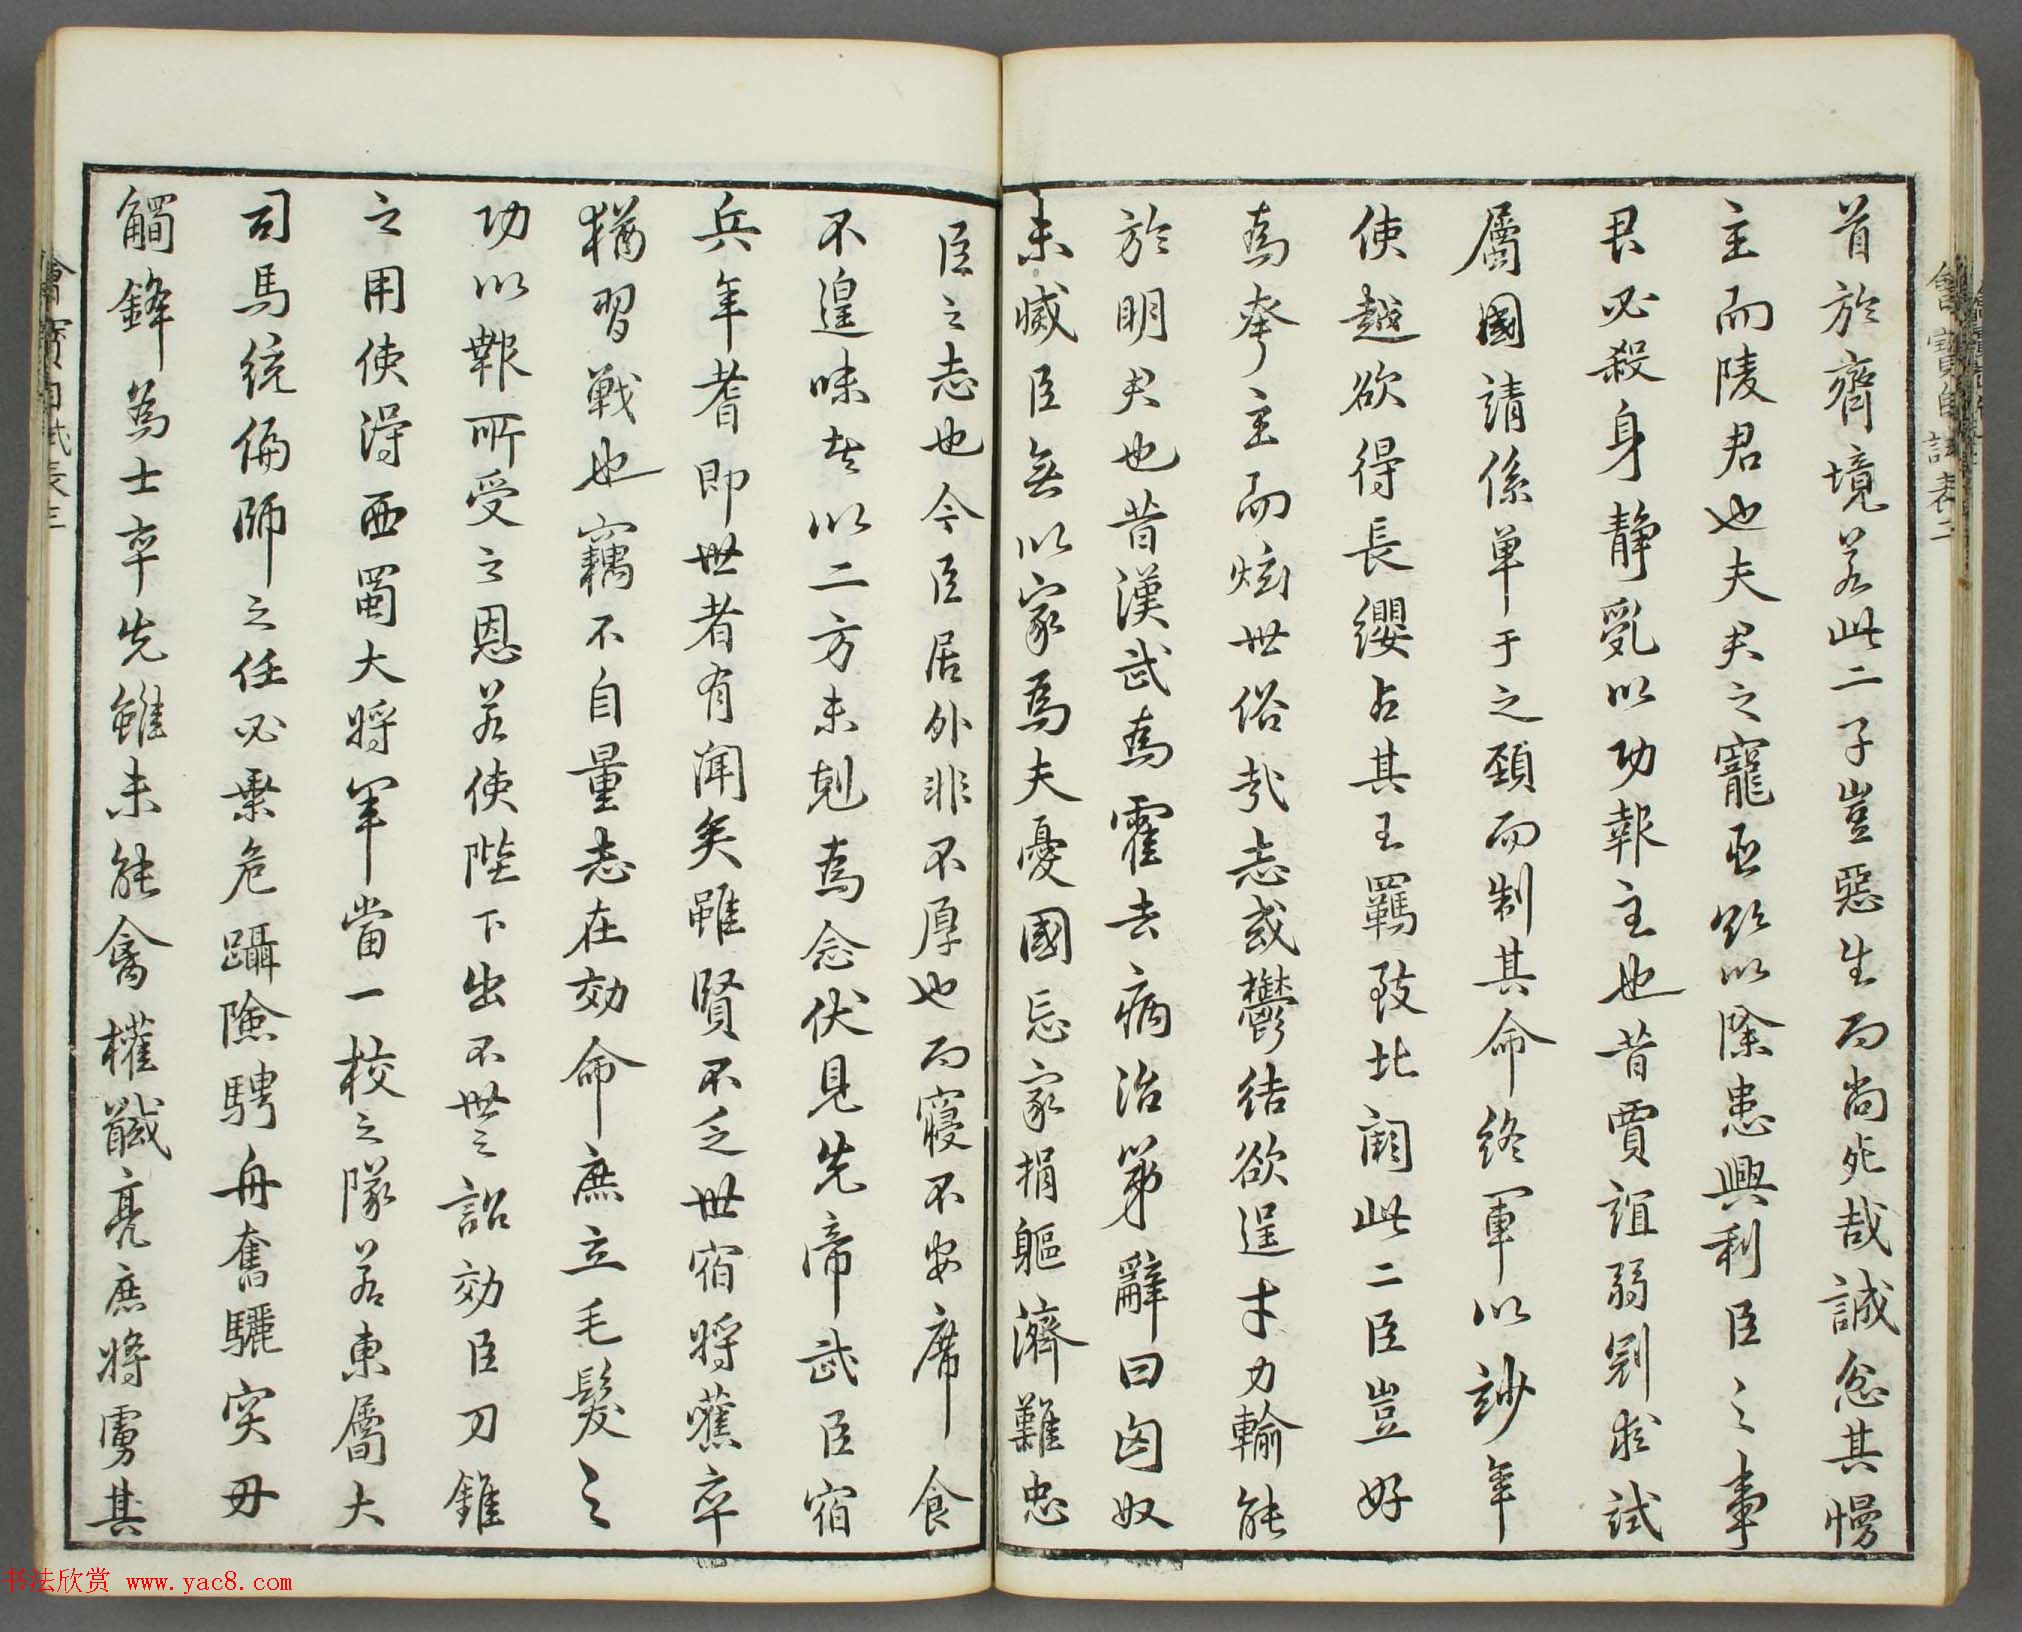 會寶自試表二
首於齊境若此二子豈惡生而尚死哉誠忿其慢
主而陵君也夫君之寵臣欲以除患興利臣之事
君必殺身靜亂以功報主也昔賈誼弱冠求試
屬國請係單于之頸而制其命終軍以妙年
使越欲得長纓占其王羈致北闕此二臣豈好
為夸主而炫世俗哉志或鬱結欲逞才力輸能
於明君也昔漢武為霍去病治第辭曰匈奴
未滅臣無以家為夫憂國忘家捐軀濟難忠
臣之志也今臣居外非不厚也而寢不安席食
不遑味者以二方未剋為念伏見先帝武臣宿
兵年耆即世者有聞矣雖賢不乏世宿將舊卒
猶習戰也竊不自量志在効命庶立毛髮之
功以報所受之恩若使陛下出不世之詔効臣刀錐
之用使得西蜀大將軍當一校之隊若東屬大
司馬統偏師之任必乘危躡險騁舟奮驪突刃
觸鋒為士卒先雖未能禽權馘亮庶將虜其
會寶自試表三
书法欣赏 www.yac8.com